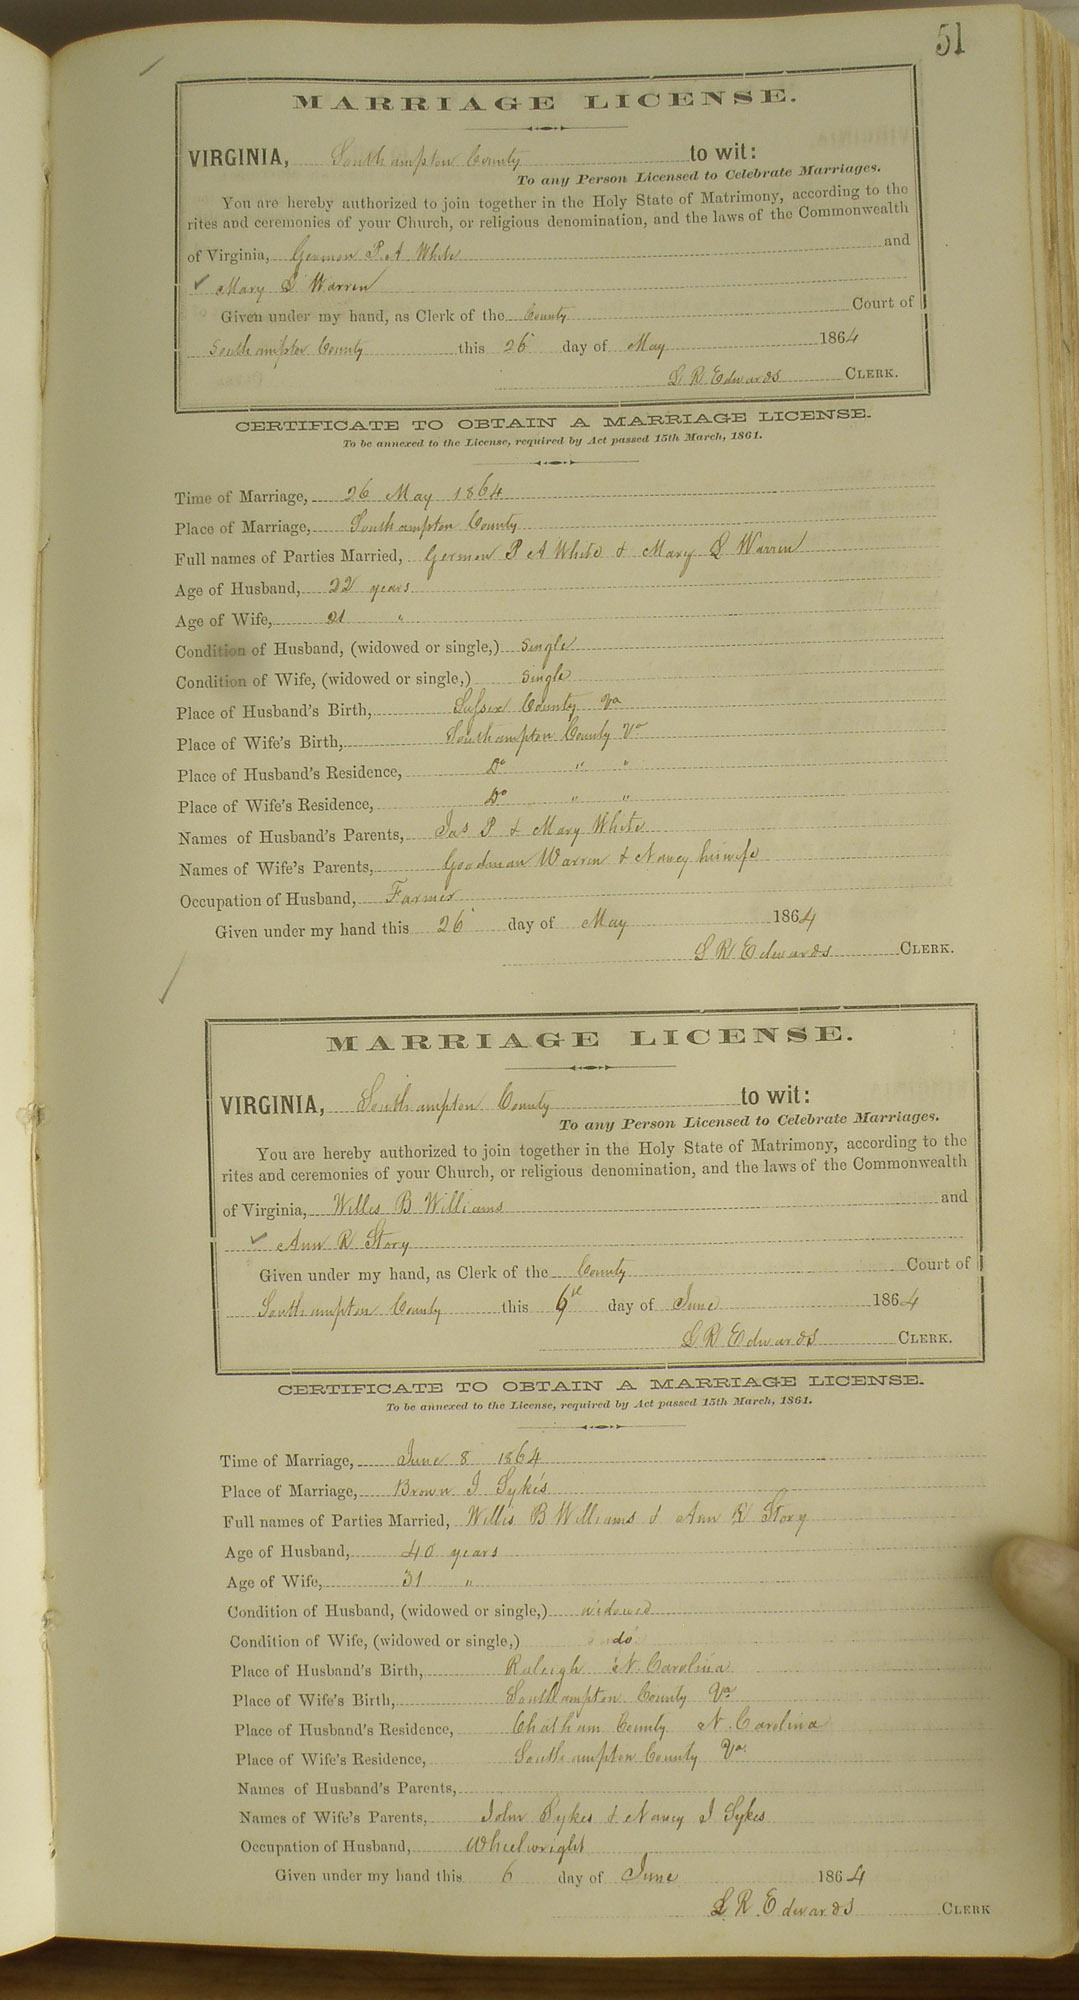 51
MARRIAGE LICENSE.
VIRGINIA, Southampton County to wit:
To any Person Licensed to Celebrate Marriages.
You are hereby authorized to join together in the Holy State of Matrimony, according to the
rites and ceremonies of your Church, or religious denomination, and the laws of the Commonwealth
of Virginia, German P. A White and
Mary L Warren
Given under my hand, as Clerk of the County Court of
Southampton County this 26 day of May 1864
L R Edwards CLERK.
CERTIFICATE TO OBTAIN A MARRIAGE LICENSE.
To be annexed to the License, required by Act passed 15th March, 1861.
Time of Marriage, 26 May 1864
Place of Marriage, Southampton County
Full names of Parties Married, German P A White & Mary L Warren
Age of Husband, 22 years
Age of Wife, 21 "
Condition of Husband, (widowed or single,) Single
Condition of Wife, (widowed or single,) Single
Place of Husband's Birth, Sussex County Va
Place of Wife's Birth, Southampton County Va
Place of Husband's Residence, Do " "
Place of Wife's Residence, Do " "
Names of Husband's Parents, Jas P & Mary White
Names of Wife's Parents, Goodman Warren & Nancy his wife
Occupation of Husband, Farmer
Given under my hand this 26 day of May 1864
L R Edwards CLERK.
MARRIAGE LICENSE.
VIRGINIA, Southampton County to wit:
To any Person Licensed to Celebrate Marriages.
You are hereby authorized to join together in the Holy State of Matrimony, according to the
rites and ceremonies of your Church, or religious denomination, and the laws of the Commonwealth
of Virginia, Willis B Williams and
Ann R Story
Given under my hand, as Clerk of the County Court of
Southampton County this 6th day of June 1864
L R Edwards CLERK.
CERTIFICATE TO OBTAIN A MARRIAGE LICENSE.
To be annexed to the License, required by Act passed 15th March, 1861.
Time of Marriage, June 8 1864
Place of Marriage, Brown J Sykes
Full names of Parties Married, Willis B Williams & Ann R Story
Age of Husband, 40 years
Age of Wife, 31 "
Condition of Husband, (widowed or single,) widowed
Condition of Wife, (widowed or single,) do
Place of Husband's Birth, Raleigh N. Carolina
Place of Wife's Birth, Southampton County Va
Place of Husband's Residence, Chatham County N. Carolina
Place of Wife's Residence, Southampton County Va
Names of Husband's Parents,
Names of Wife's Parents, John Sykes & Nancy J Sykes
Occupation of Husband, Wheelwright
Given under my hand this 6 day of June 1864
L. R. Edwards CLERK